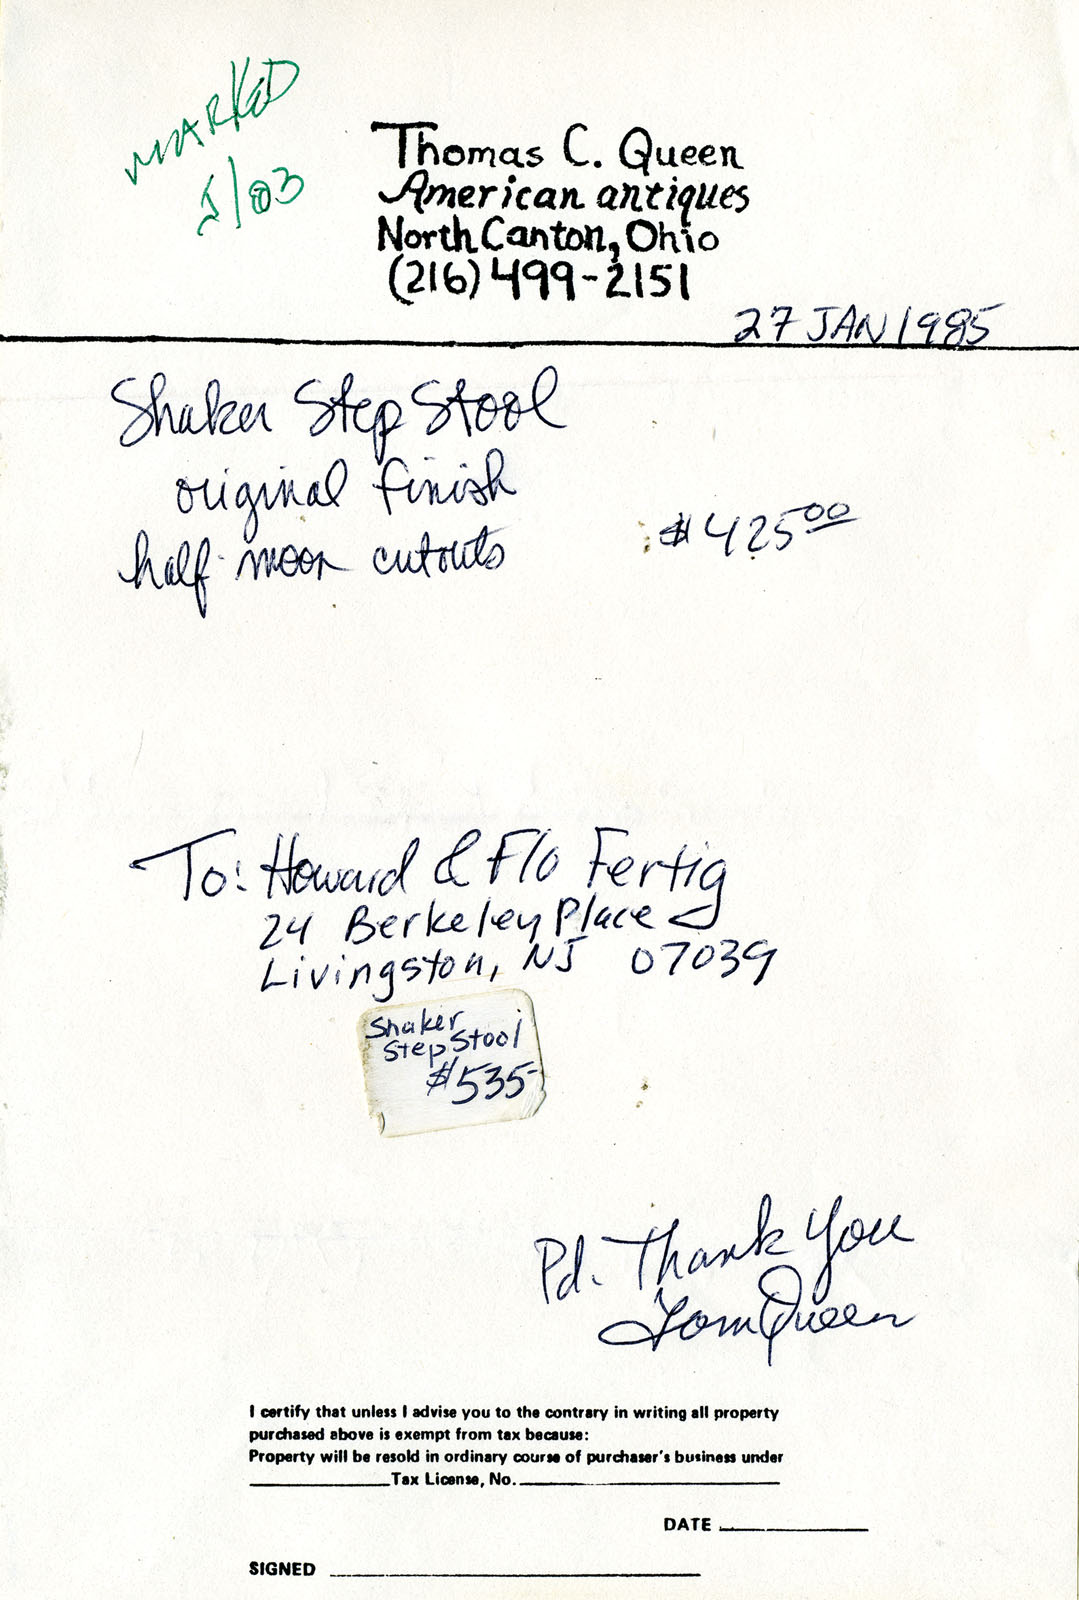 MARKED
5/03
Thomas C. Queen
American antiques
North Canton, Ohio
(216) 499-2151
27 JAN 1985
Shaker Step Stool
original finish
half-moon cutouts
$425.00
To: Howard & Flo Fertig
24 Berkeley Place
Livingston, NJ 07039
Shaker
Step Stool
$535-
Pd. Thank You
Tom Queen
I certify that unless I advise you to the contrary in writing all property
purchased above is exempt from tax because:
Property will be resold in ordinary course of purchaser's business under
____________Tax License, No.____________
DATE ____________
SIGNED ____________